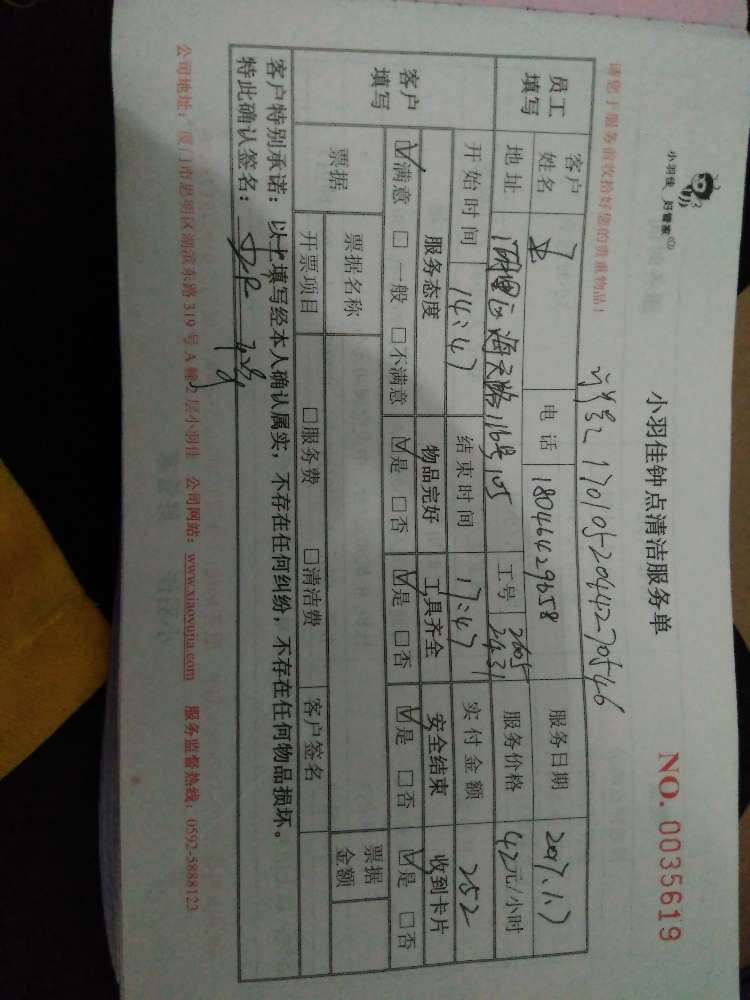 小羽佳 好管家
小羽佳钟点清洁服务单
NO. 0035619
请您于服务前收拾好您的贵重物品！
170105204427054 6
员工填写
客户姓名
电话 18046429058
服务日期 2017.1.7
地址 海天路116号105
工号 2605 2431
服务价格 42元/小时
客户填写
开始时间 14:47
结束时间 17:47
实付金额 252
服务态度 物品完好 工具齐全 安全结束 收到卡片
☑满意 □一般 □不满意 ☑是 □否 ☑是 □否 ☑是 □否 ☑是 □否
票据
票据名称
票据金额
开票项目 □服务费 □清洁费 客户签名
客户特别承诺：以上填写经本人确认属实，不存在任何纠纷，不存在任何物品损坏。
特此确认签名：
公司地址：厦门市思明区湖滨东路319号A幢2层小羽佳 公司网站：www.xiaoyujia.com 服务监督热线：0592-5888123